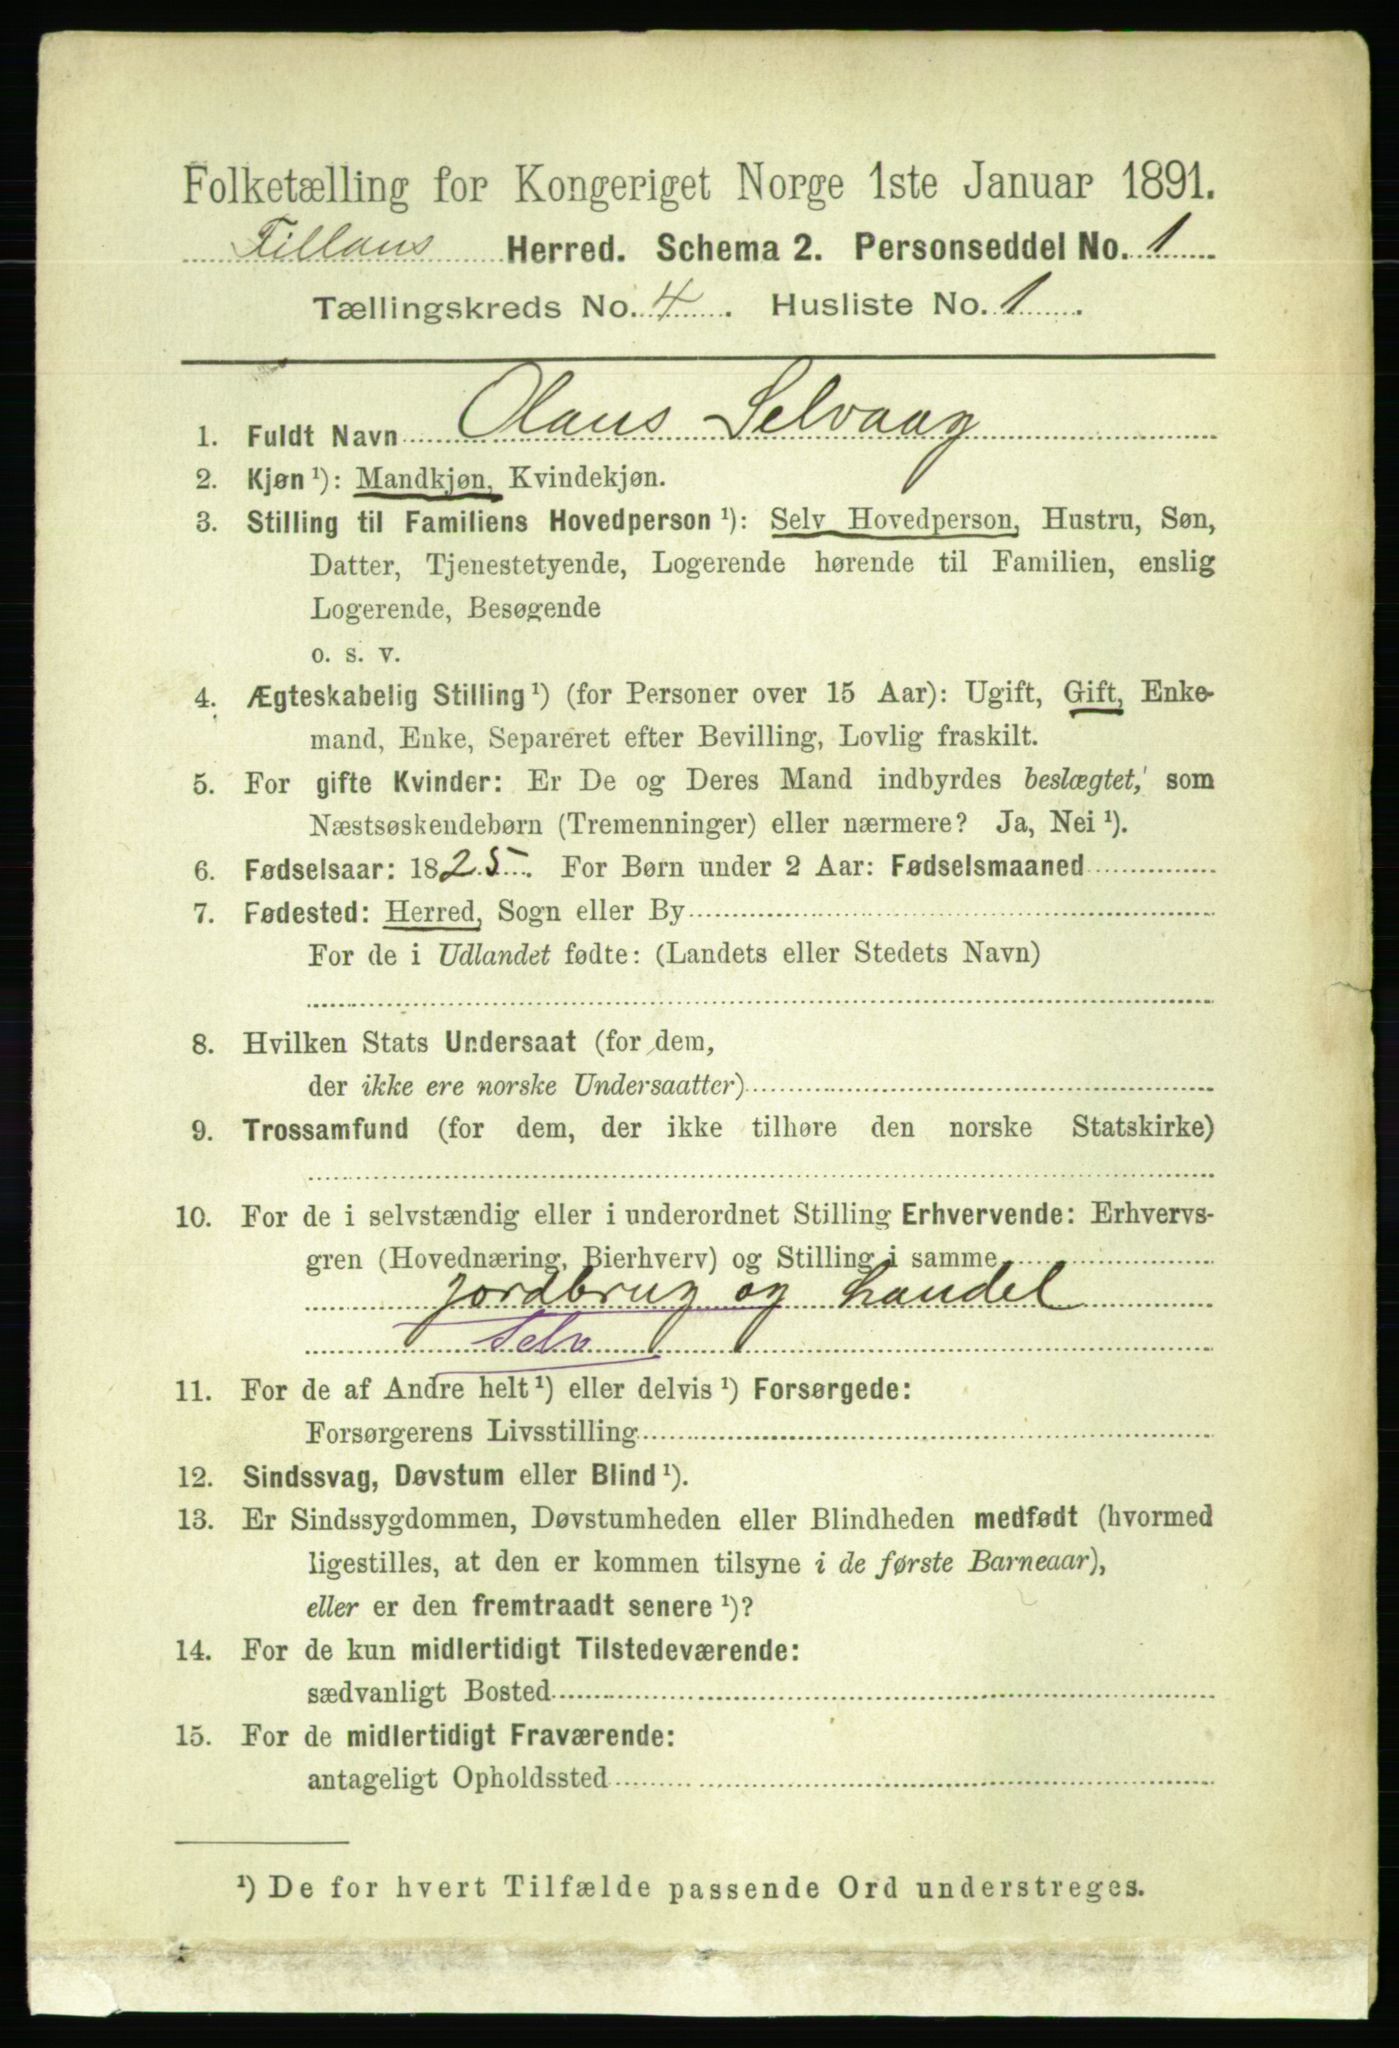 Folketælling for Kongeriget Norge 1ste Januar 1891.
Fillans Herred. Schema 2. Personseddel No. 1
Tællingskreds No. 4. Husliste No. 1.
1. Fuldt Navn Olaus Selvaag
2. Kjøn ¹): Mandkjøn, Kvindekjøn.
3. Stilling til Familiens Hovedperson ¹): Selv Hovedperson, Hustru, Søn,
Datter, Tjenestetyende, Logerende hørende til Familien, enslig
Logerende, Besøgende
o. s. v.
4. Ægteskabelig Stilling ¹) (for Personer over 15 Aar): Ugift, Gift, Enke-
mand, Enke, Separeret efter Bevilling, Lovlig fraskilt.
5. For gifte Kvinder: Er De og Deres Mand indbyrdes beslægtet, som
Næstsøskendebørn (Tremenninger) eller nærmere? Ja, Nei ¹).
6. Fødselsaar: 1825. For Børn under 2 Aar: Fødselsmaaned
7. Fødested: Herred, Sogn eller By
For de i Udlandet fødte: (Landets eller Stedets Navn)
8. Hvilken Stats Undersaat (for dem,
der ikke ere norske Undersaatter)
9. Trossamfund (for dem, der ikke tilhøre den norske Statskirke)
10. For de i selvstændig eller i underordnet Stilling Erhvervende: Erhvervs-
gren (Hovednæring, Bierhverv) og Stilling i samme
jordbrug og handel
Selv
11. For de af Andre helt ¹) eller delvis ¹) Forsørgede:
Forsørgerens Livsstilling
12. Sindssvag, Døvstum eller Blind ¹).
13. Er Sindssygdommen, Døvstumheden eller Blindheden medfødt (hvormed
ligestilles, at den er kommen tilsyne i de første Barneaar),
eller er den fremtraadt senere ¹)?
14. For de kun midlertidigt Tilstedeværende:
sædvanligt Bosted
15. For de midlertidigt Fraværende:
antageligt Opholdssted
¹) De for hvert Tilfælde passende Ord understreges.